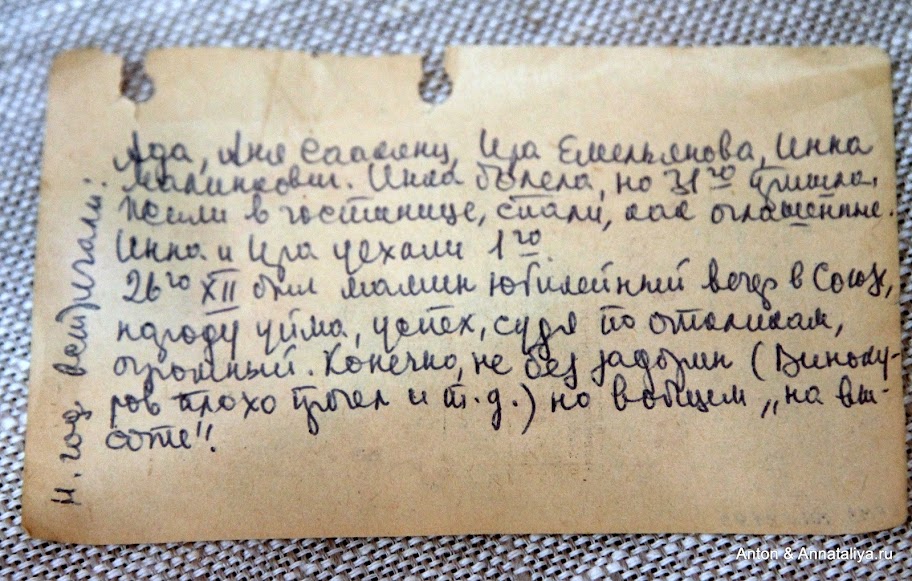 Н. год встречали:
Ада, Аня Саакянц, Ира Емельянова, Инна
Малинкович. Инна болела, но 31го пришла.
Жили в гостинице, спали, как оглашенные.
Инна и Ира уехали 1го
26го XII был мамин юбилейный вечер в Союзе,
народу уйма, успех, судя по откликам,
огромный. Конечно, не без задорин (Виноку-
ров плохо прочел и т.д.) но в общем „на вы-
соте".
Anton & Annataliya.ru